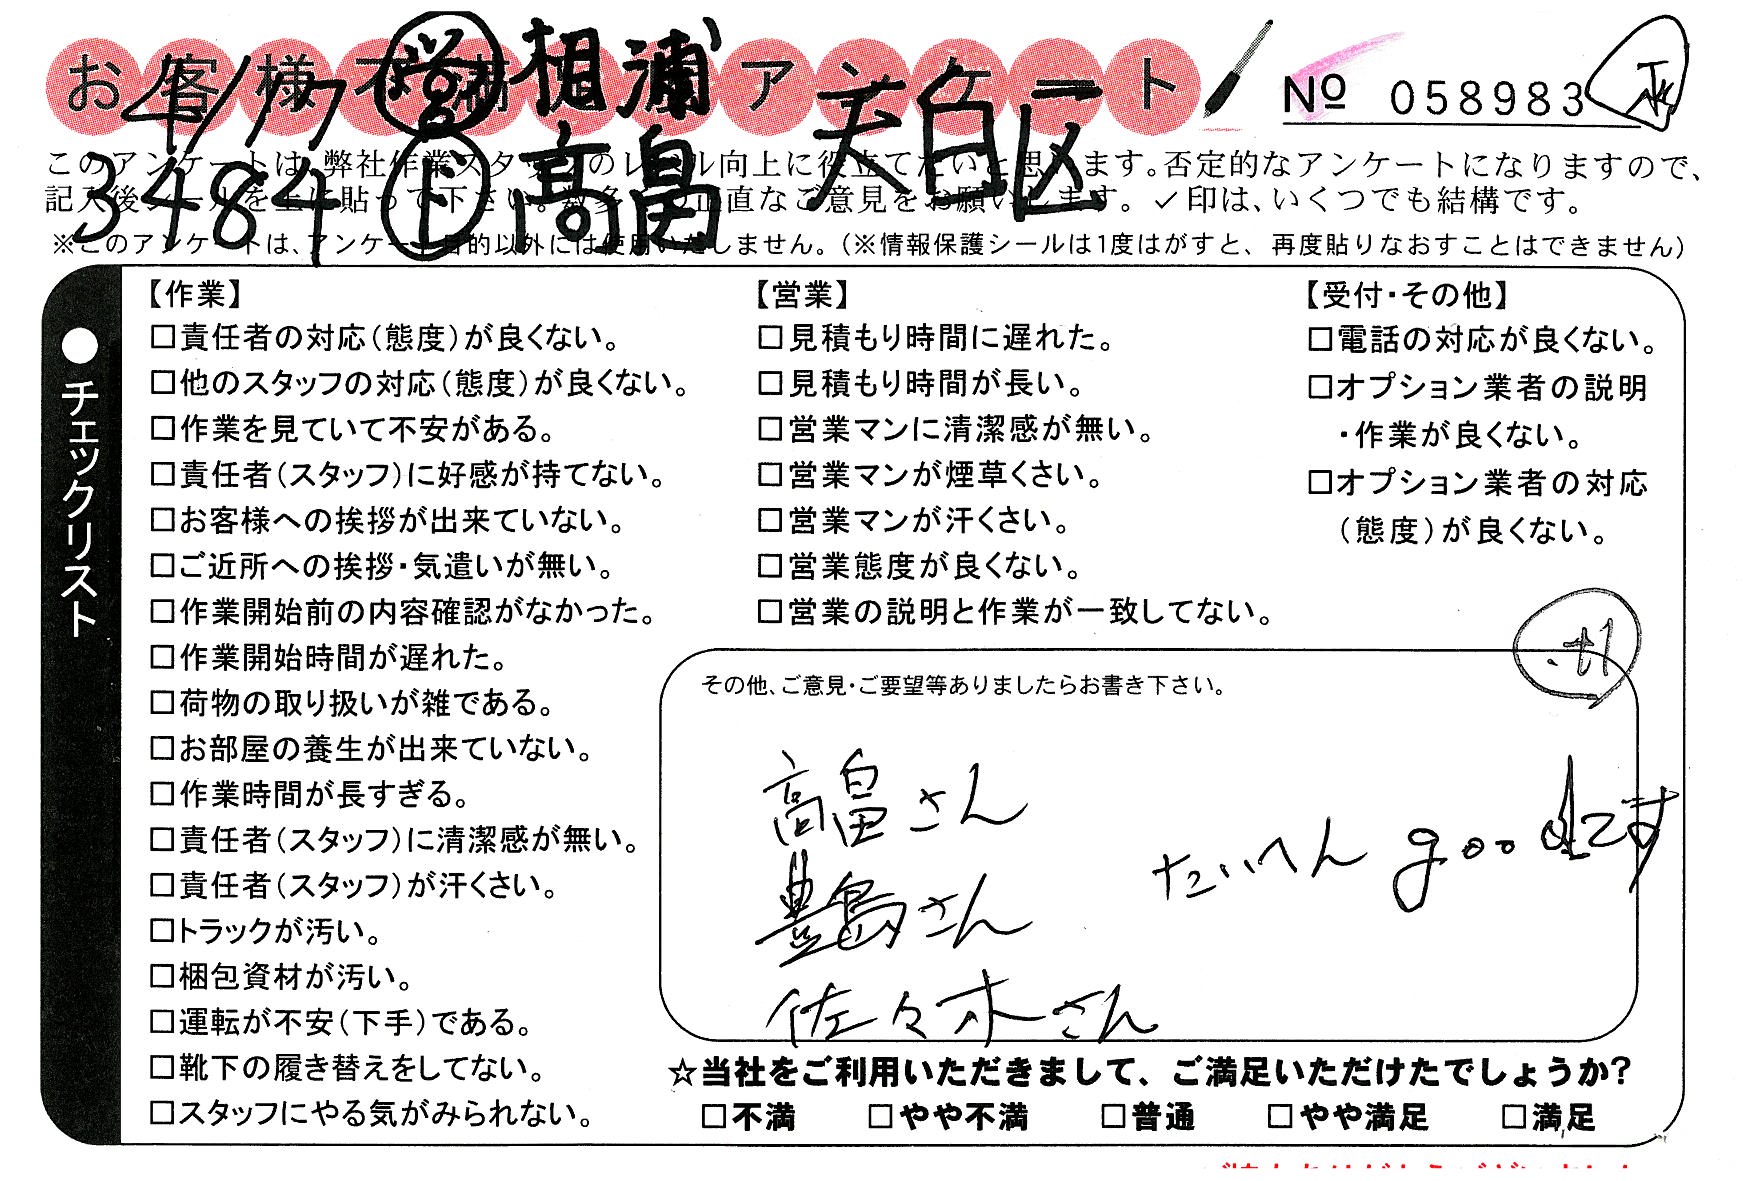 お客様不満アンケート № 058983
4/17 営 相浦 天白区
3484 下 高畠
このアンケートは、弊社作業スタッフのレベル向上に役立てたいと思います。否定的なアンケートになりますので、
記入後シールを上に貼って下さい。数多くの正直なご意見をお願いします。✓印は、いくつでも結構です。
※このアンケートは、アンケート目的以外には使用いたしません。(※情報保護シールは1度はがすと、再度貼りなおすことはできません)
●チェックリスト
【作業】
□責任者の対応(態度)が良くない。
□他のスタッフの対応(態度)が良くない。
□作業を見ていて不安がある。
□責任者(スタッフ)に好感が持てない。
□お客様への挨拶が出来ていない。
□ご近所への挨拶・気遣いが無い。
□作業開始前の内容確認がなかった。
□作業開始時間が遅れた。
□荷物の取り扱いが雑である。
□お部屋の養生が出来ていない。
□作業時間が長すぎる。
□責任者(スタッフ)に清潔感が無い。
□責任者(スタッフ)が汗くさい。
□トラックが汚い。
□梱包資材が汚い。
□運転が不安(下手)である。
□靴下の履き替えをしてない。
□スタッフにやる気がみられない。
【営業】
□見積もり時間に遅れた。
□見積もり時間が長い。
□営業マンに清潔感が無い。
□営業マンが煙草くさい。
□営業マンが汗くさい。
□営業態度が良くない。
□営業の説明と作業が一致してない。
【受付・その他】
□電話の対応が良くない。
□オプション業者の説明
・作業が良くない。
□オプション業者の対応
(態度)が良くない。
その他、ご意見・ご要望等ありましたらお書き下さい。
高畠さん
豊島さん
佐々木さん
たいへん goodです
☆当社をご利用いただきまして、ご満足いただけたでしょうか?
□不満 □やや不満 □普通 □やや満足 □満足